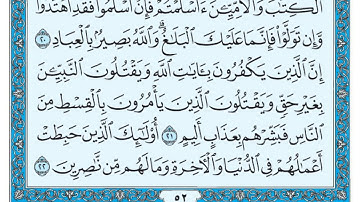 ٱلْكِتَٰبَ وَٱلْأُمِّيِّۦنَ ءَأَسْلَمْتُمْ فَإِنْ أَسْلَمُوا۟ فَقَدِ ٱهْتَدَوا۟
وَّإِن تَوَلَّوْا۟ فَإِنَّمَا عَلَيْكَ ٱلْبَلَٰغُ وَٱللَّهُ بَصِيرٌۢ بِٱلْعِبَادِ ٢٠
إِنَّ ٱلَّذِينَ يَكْفُرُونَ بِـَٔايَٰتِ ٱللَّهِ وَيَقْتُلُونَ ٱلنَّبِيِّۦنَ
بِغَيْرِ حَقٍّ وَيَقْتُلُونَ ٱلَّذِينَ يَأْمُرُونَ بِٱلْقِسْطِ مِنَ
ٱلنَّاسِ فَبَشِّرْهُم بِعَذَابٍ أَلِيمٍ ٢١ أُو۟لَٰٓئِكَ ٱلَّذِينَ حَبِطَتْ
أَعْمَٰلُهُمْ فِى ٱلدُّنْيَا وَٱلْءَاخِرَةِ وَمَا لَهُم مِّن نَّٰصِرِينَ ٢٢
٥٢